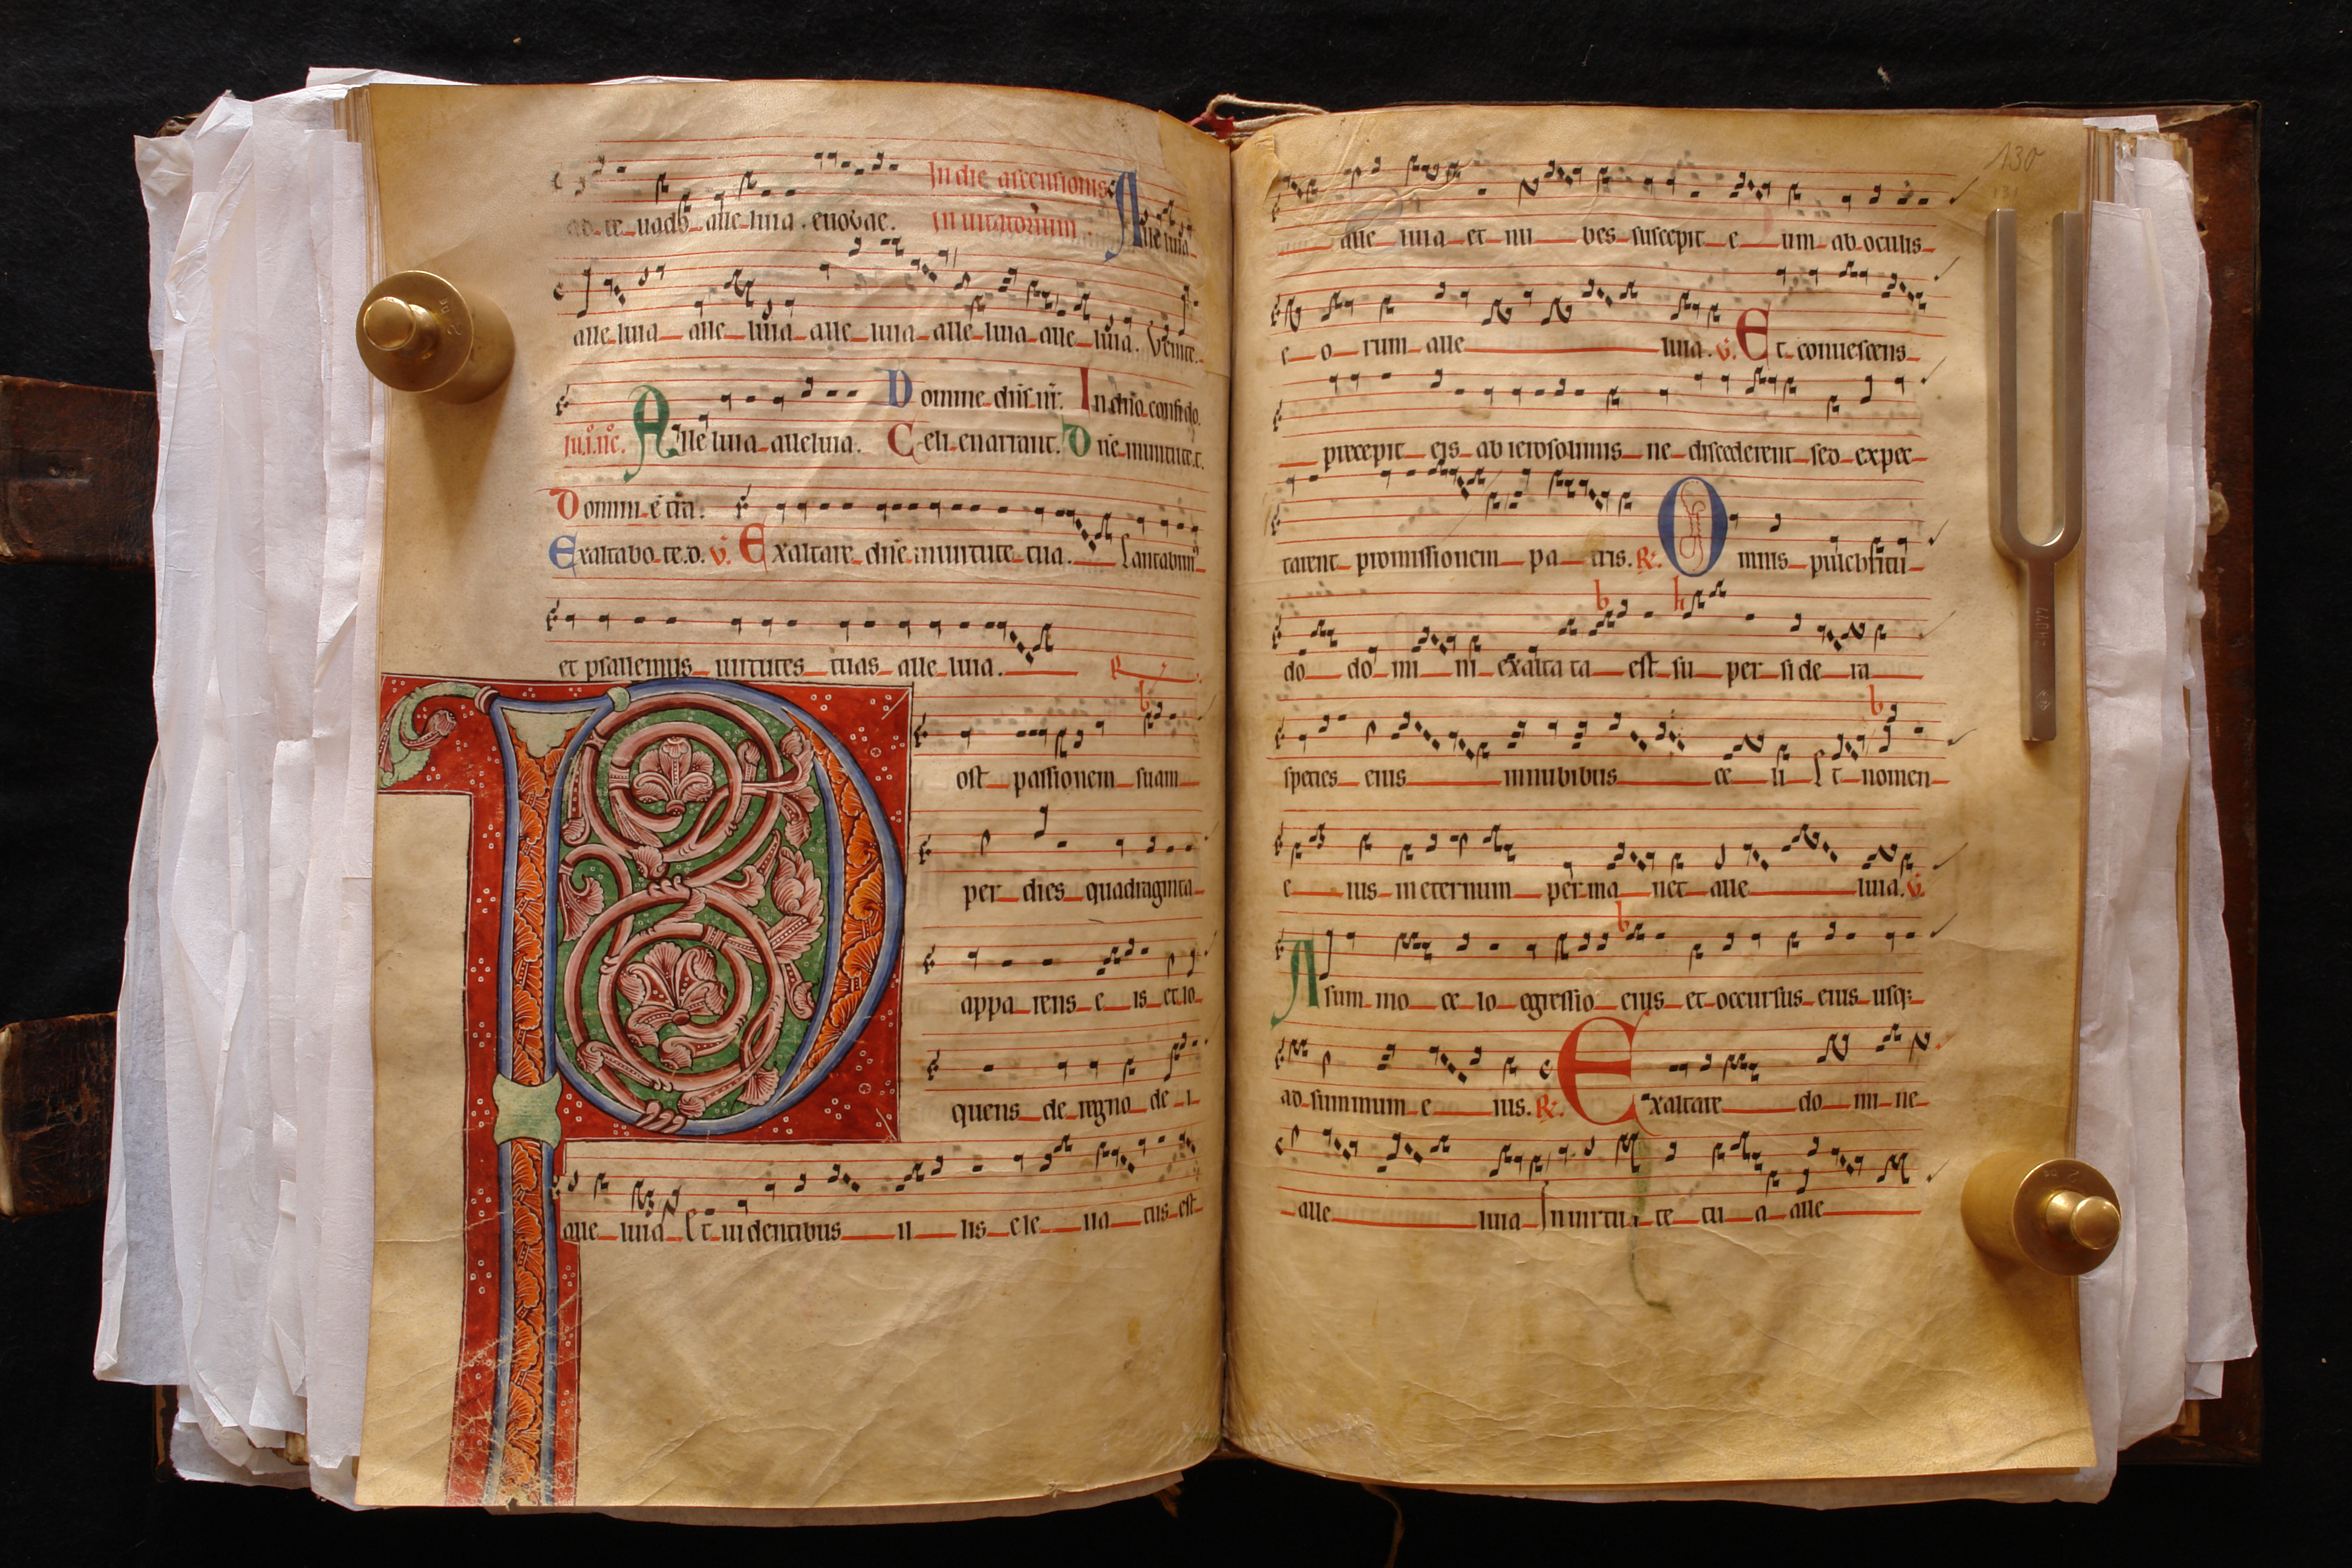 ad te uado alleluia. euouae. In die ascensionis
In uitatorium. Alleluia
alle luia alle luia alle luia alle luia alle luia. Venite.
Domine dn̄s nr̄. In dn̄o confido.
in .i. nc̄. Alle luia alleluia. Celi enarrant. Dn̄e in uirtute.t.
Domini ē tr̄a.
Exaltabo te.d. V. Exaltare dn̄e in uirtute tua. Cantabim'
et psallemus uirtutes tuas alle luia.
R
Post passionem suam
per dies quadraginta
appa rens e is et lo
quens de regno de i
alle luia Et uidentibus il lis ele ua tus est
130
alle luia et nu bes suscepit e um ab oculis
e o rum alle luia. V. Et conuescens
precepit eis ab ierosolimis ne discederent sed expec
tarent promissionem pa tris. R. Omnis pulchritu
b h
do do mi ni exalta ta est su per si de ra
b
species eius in nubibus ce li Et nomen
e ius in eternum per ma net alle luia. V.
b
A sum mo ce lo egressio eius et occursus eius usq;
ad summum e ius. R. Exaltare do mi ne
alle luia In uirtu te tu a alle